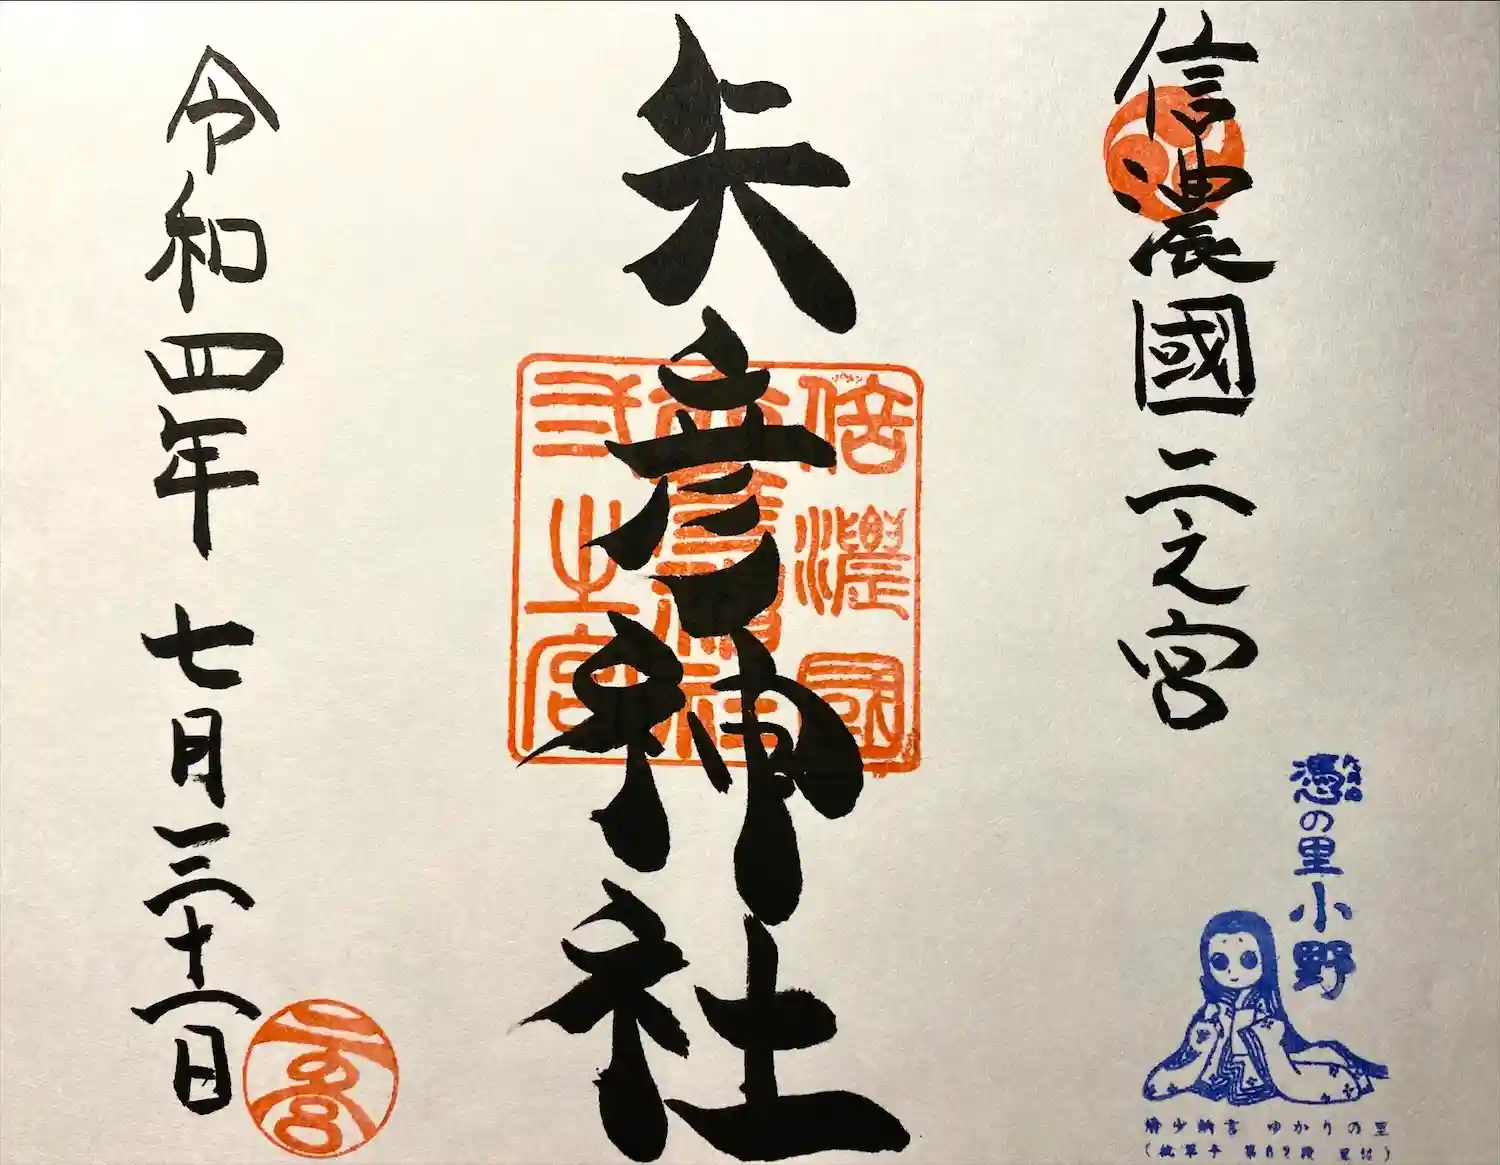 信濃國二之宮
矢彦神社
令和四年七月三十一日
信濃國
弐之宮
憑の里小野
たのめ
清少納言 ゆかりの里
二之宮